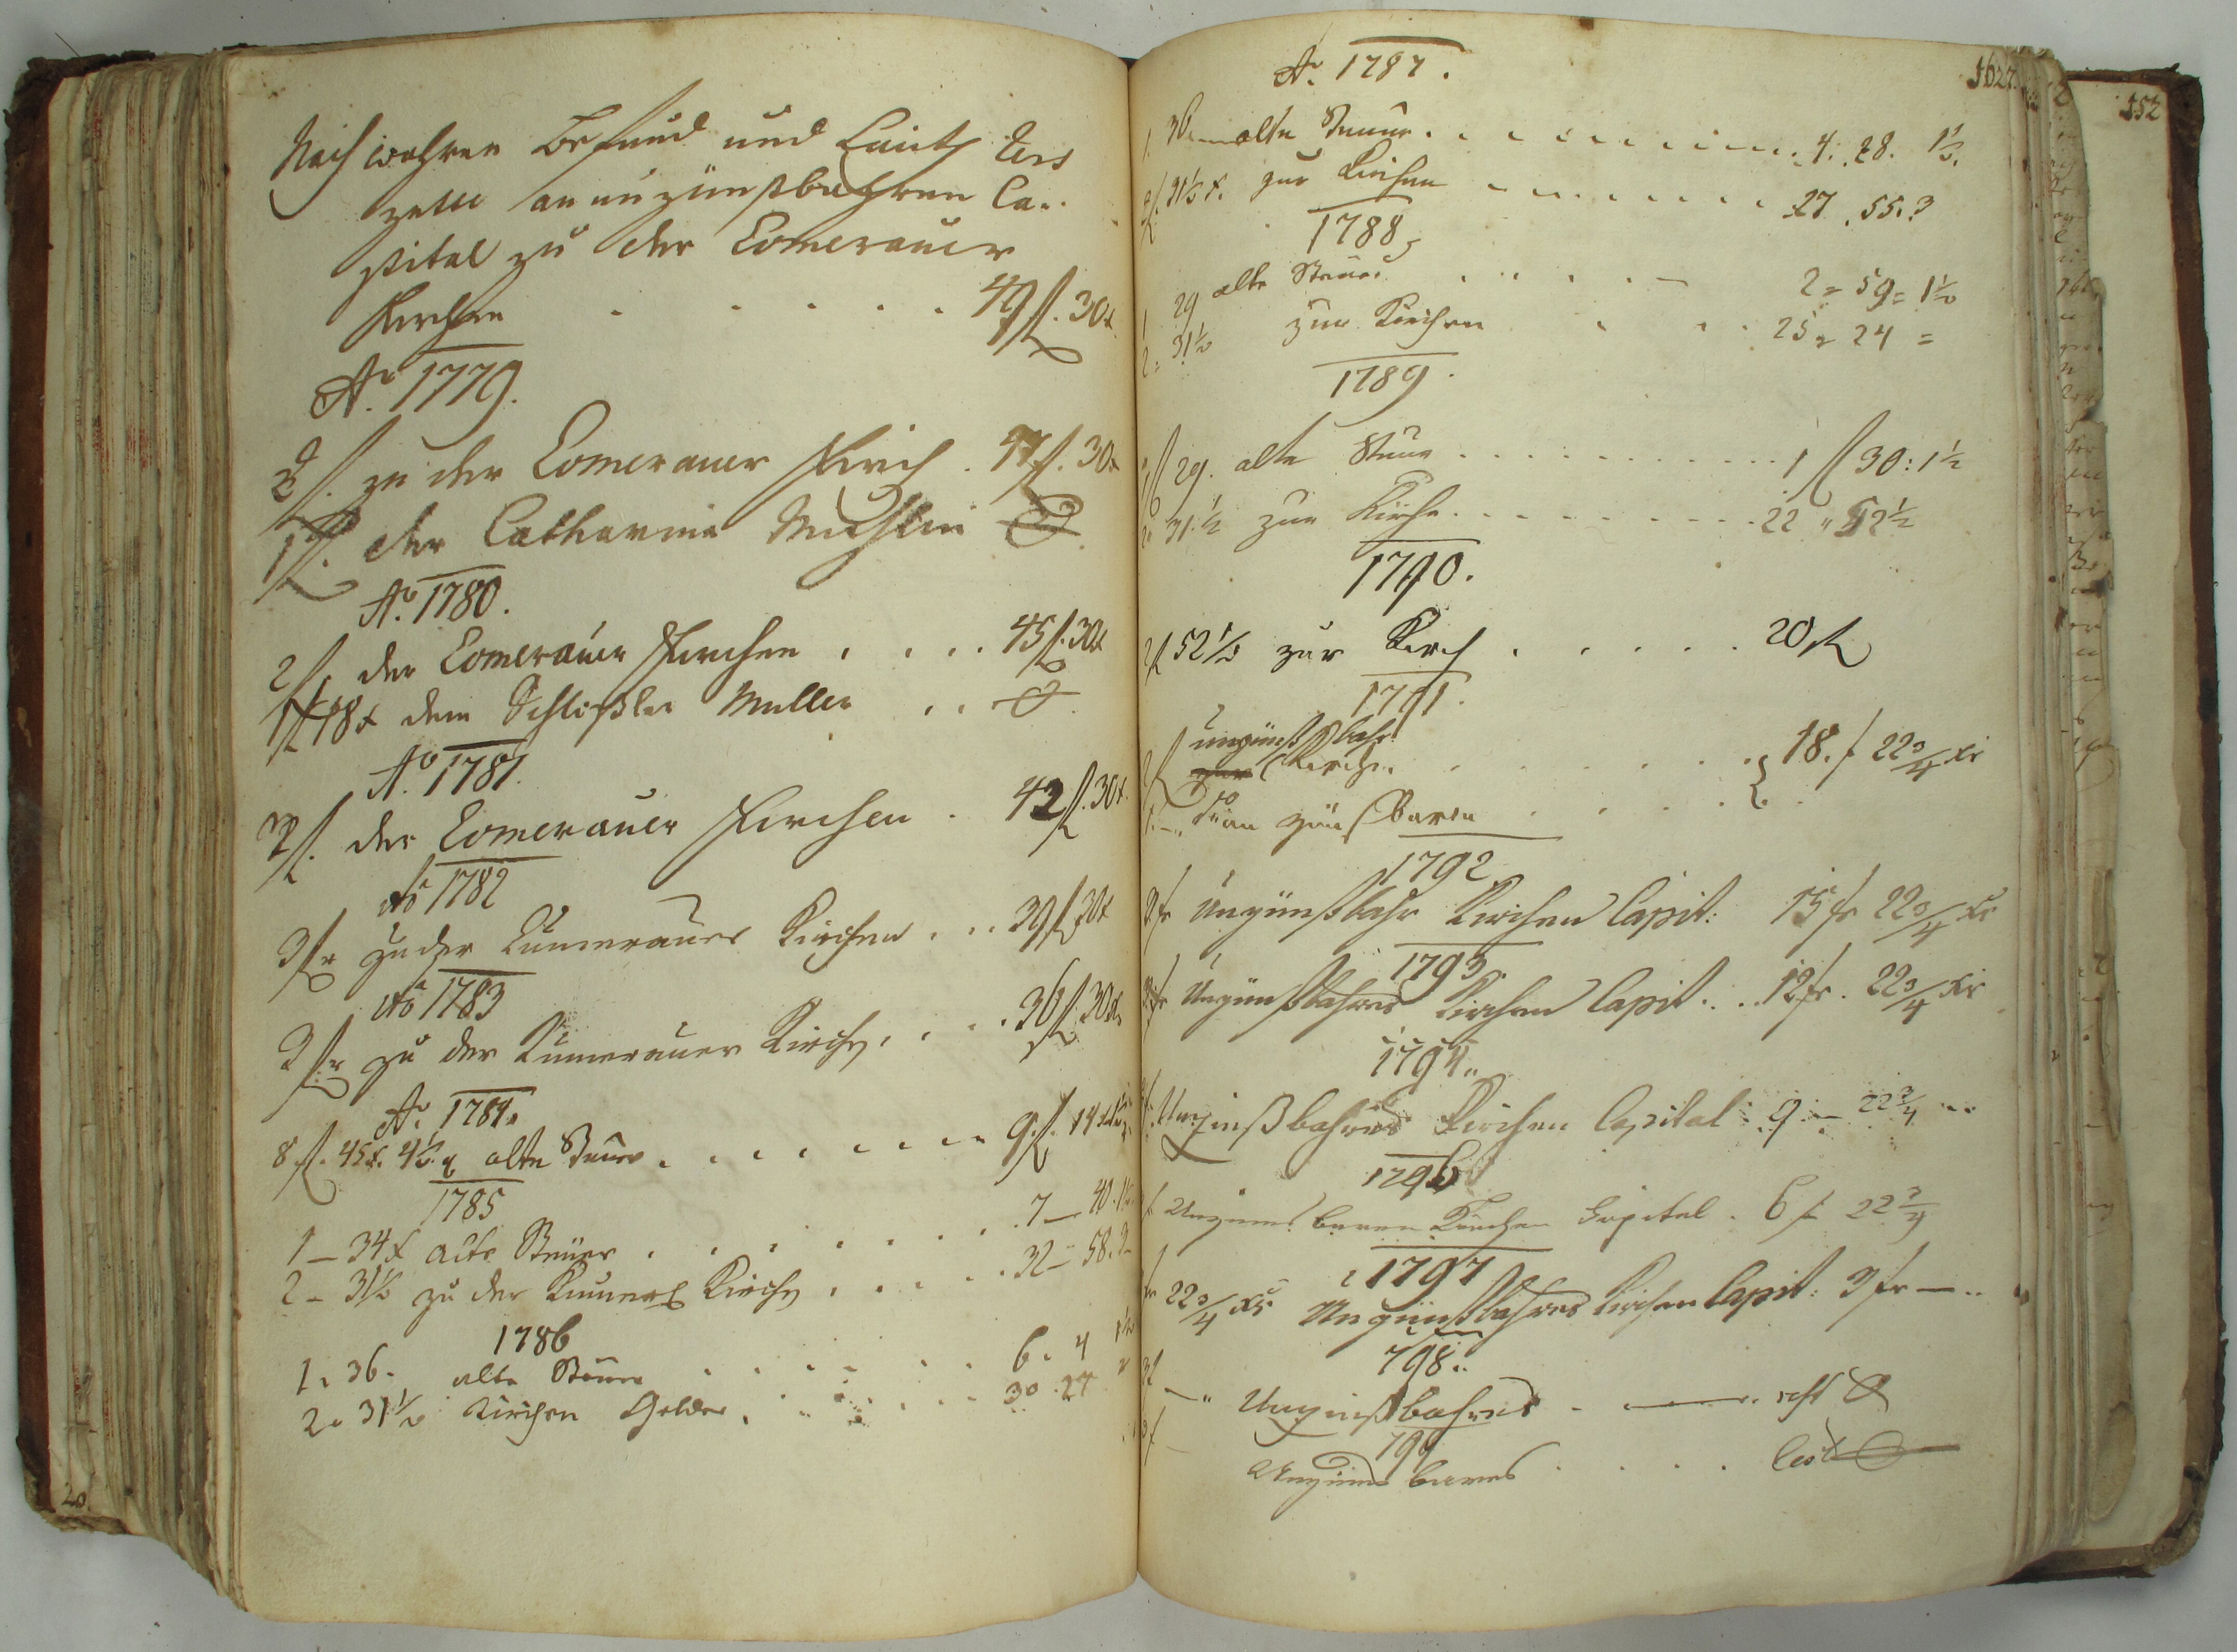 Nach wahren Befund und Lauth des
zettl an unzünßbahren Ca-
pital zu der Comerauer
Kirchen . . . . . 49 f. 30 x
Ao. 1779.
2 f. zu der Comerauer Kirch . 47 f. 30 x
1 f. der Catharina
Ao. 1780.
2 f. der Comerauer Kirchen . . . . 45 f. 30 x
1 f 18 x dem Müller . .
Ao. 1781.
3 f. der Comerauer Kirchen . 42 f. 30 x
Ao 1782
3 fr zu der Cumerauer Kirchen . . . 39 f 30 x
Ao 1783
3 fr zu der Cumerauer Kirchen . . . . 36 f 30 x
Ao. 1784.
8 f. 45 x. alte Steuer . . . . . . . 9 f. 14 x
1785
1 – 34 x alte Steuer . . . . . . . . 7 – 40.
2 – 31½ zu der Kirchen . . . . . 32 – 58. 3
1786
1. 36. alte Steuer . . . . . . 6. 4
2. 31½ Kirchen Gelder . . . . . . 30. 27
152
162
Ao. 1787.
1. 36 alte Steuer . . . . . . . . . . 4. 28. 1½.
2 f. 31½ x. zur Kirchen . . . . . . . . 27. 55. 3
1788
1 29 alte Steuer . . . . . 2 = 59 = 1½
2 = 31½ zur Kirchen . . . 25 = 24 =
1789.
1 f 29. alte Steuer . . . . . . . . . . . 1 f 30: 1½
2. 31½ zur Kirche . . . . . . . . . 22 " 52½
1790.
2 f 52½ zur Kirch . . . . . 20 f
1791.
unzünßbahr
2 f Kirchen . . . . . . 18. f 22¾ xr
1. – zünßbaren . . . .
1792
3 fr Unzünßbahr Kirchen Capit: 15 fr 22¾ xr
1793
3 fr Unzünßbahres Kirchen Capit. . . 12 fr. 22¾ xr
1794..
Unzinßbahres Kirchen Capital . 9 – 22¾ –
1796
Unzinsbaren Kirchen Capital . 6 f 22¾
1797
3 fr 22¾ xr Unzünßbahres Kirchen Capit: 3 fr – ..
798..
3 f – " Unzinßbahres . – . rest
799
3 f – Unzinsbares . . . . . Rest
20